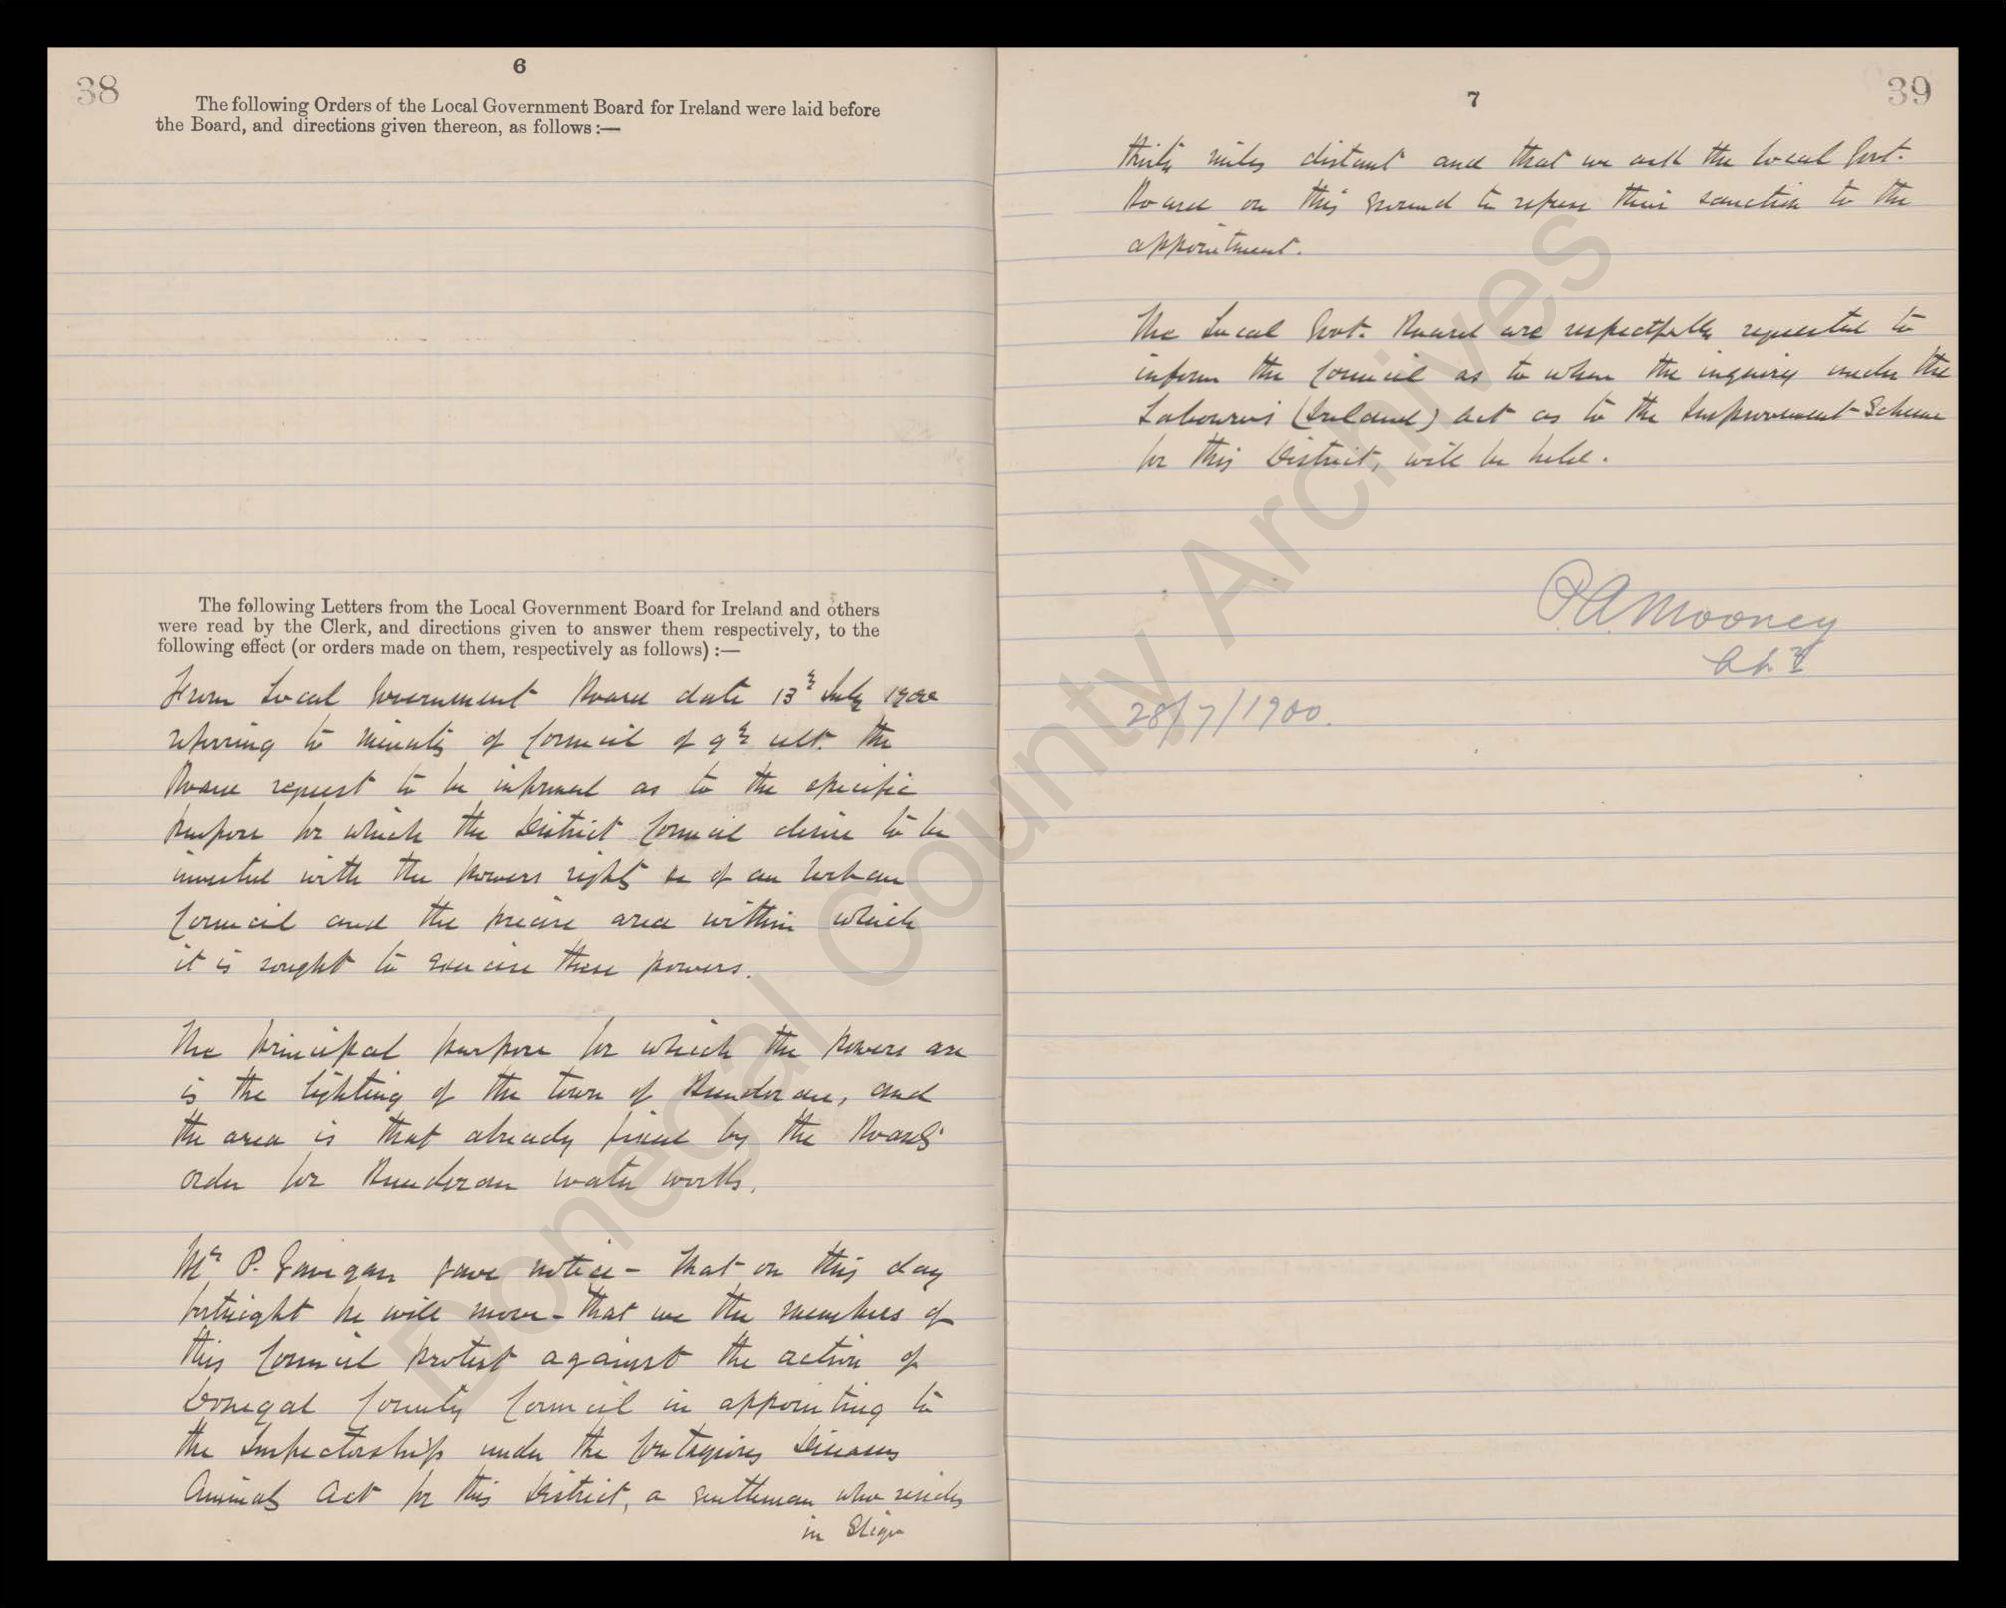 38
6
The following Orders of the Local Government Board for Ireland were laid before
the Board, and directions given thereon, as follows :—
The following Letters from the Local Government Board for Ireland and others
were read by the Clerk, and directions given to answer them respectively, to the
following effect (or orders made on them, respectively as follows) :—
From Local Government Board date 13th July 1900
referring to minutes of Council of 9th ult. the
Board request to be informed as to the specific
purpose for which the District Council desire to be
invested with the powers rights &c of an Urban
Council and the precise area within which
it is sought to exercise these powers.
The principal purpose for which the powers are
is the lighting of the town of Bundoran, and
the area is that already fixed by the Board's
order for Bundoran water works.
Mr P. Gavigan gave notice - that on this day
fortnight he will move - that we the members of
this Council protest against the action of
Donegal County Council in appointing to
the Inspectorship under the Contagious Diseases
Animals Act for this District, a gentleman who resides
in Sligo
39
7
thirty miles distant and that we ask the Local Govt.
Board on this ground to refuse their sanction to the
appointment.
The Local Govt. Board are respectfully requested to
inform the Council as to when the inquiry under the
Labourers (Ireland) Act as to the Improvement Scheme
for this District, will be held.
P.A. Mooney
28/7/1900.
Donegal County Archives